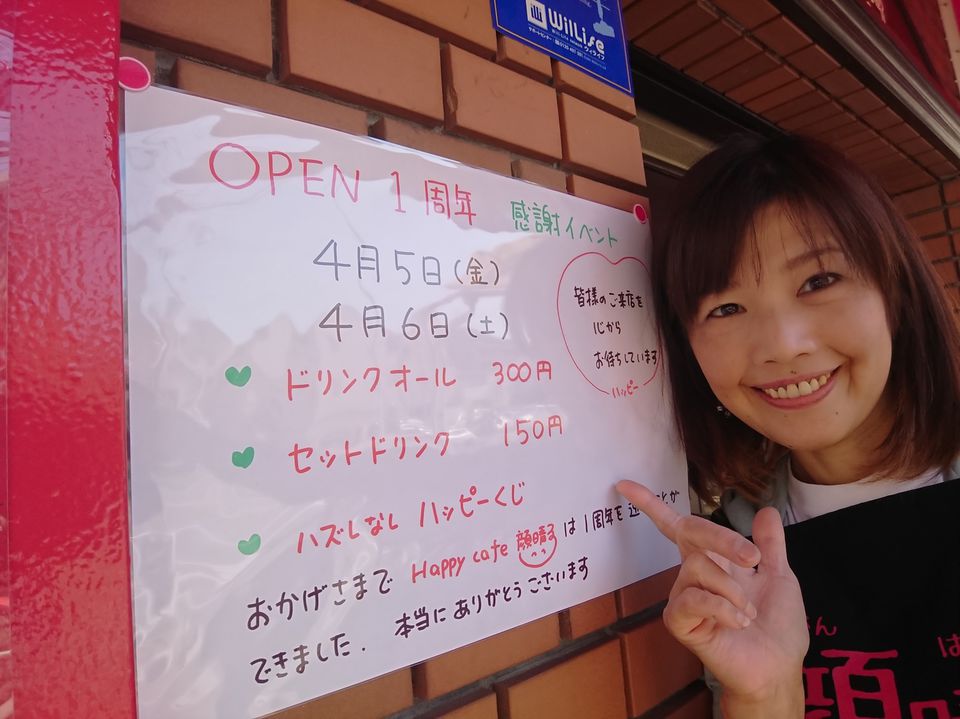 WilLife
ウィライフ
OPEN 1周年 感謝イベント
4月5日(金)
4月6日(土)
皆様のご来店を
心から
お待ちしています
ハッピー
ドリンクオール 300円
セットドリンク 150円
ハズレなし ハッピーくじ
おかげさまで Happy cafe 顔晴る は 1周年を ことが
できました. 本当に ありがとう ございます
ん
は
顔